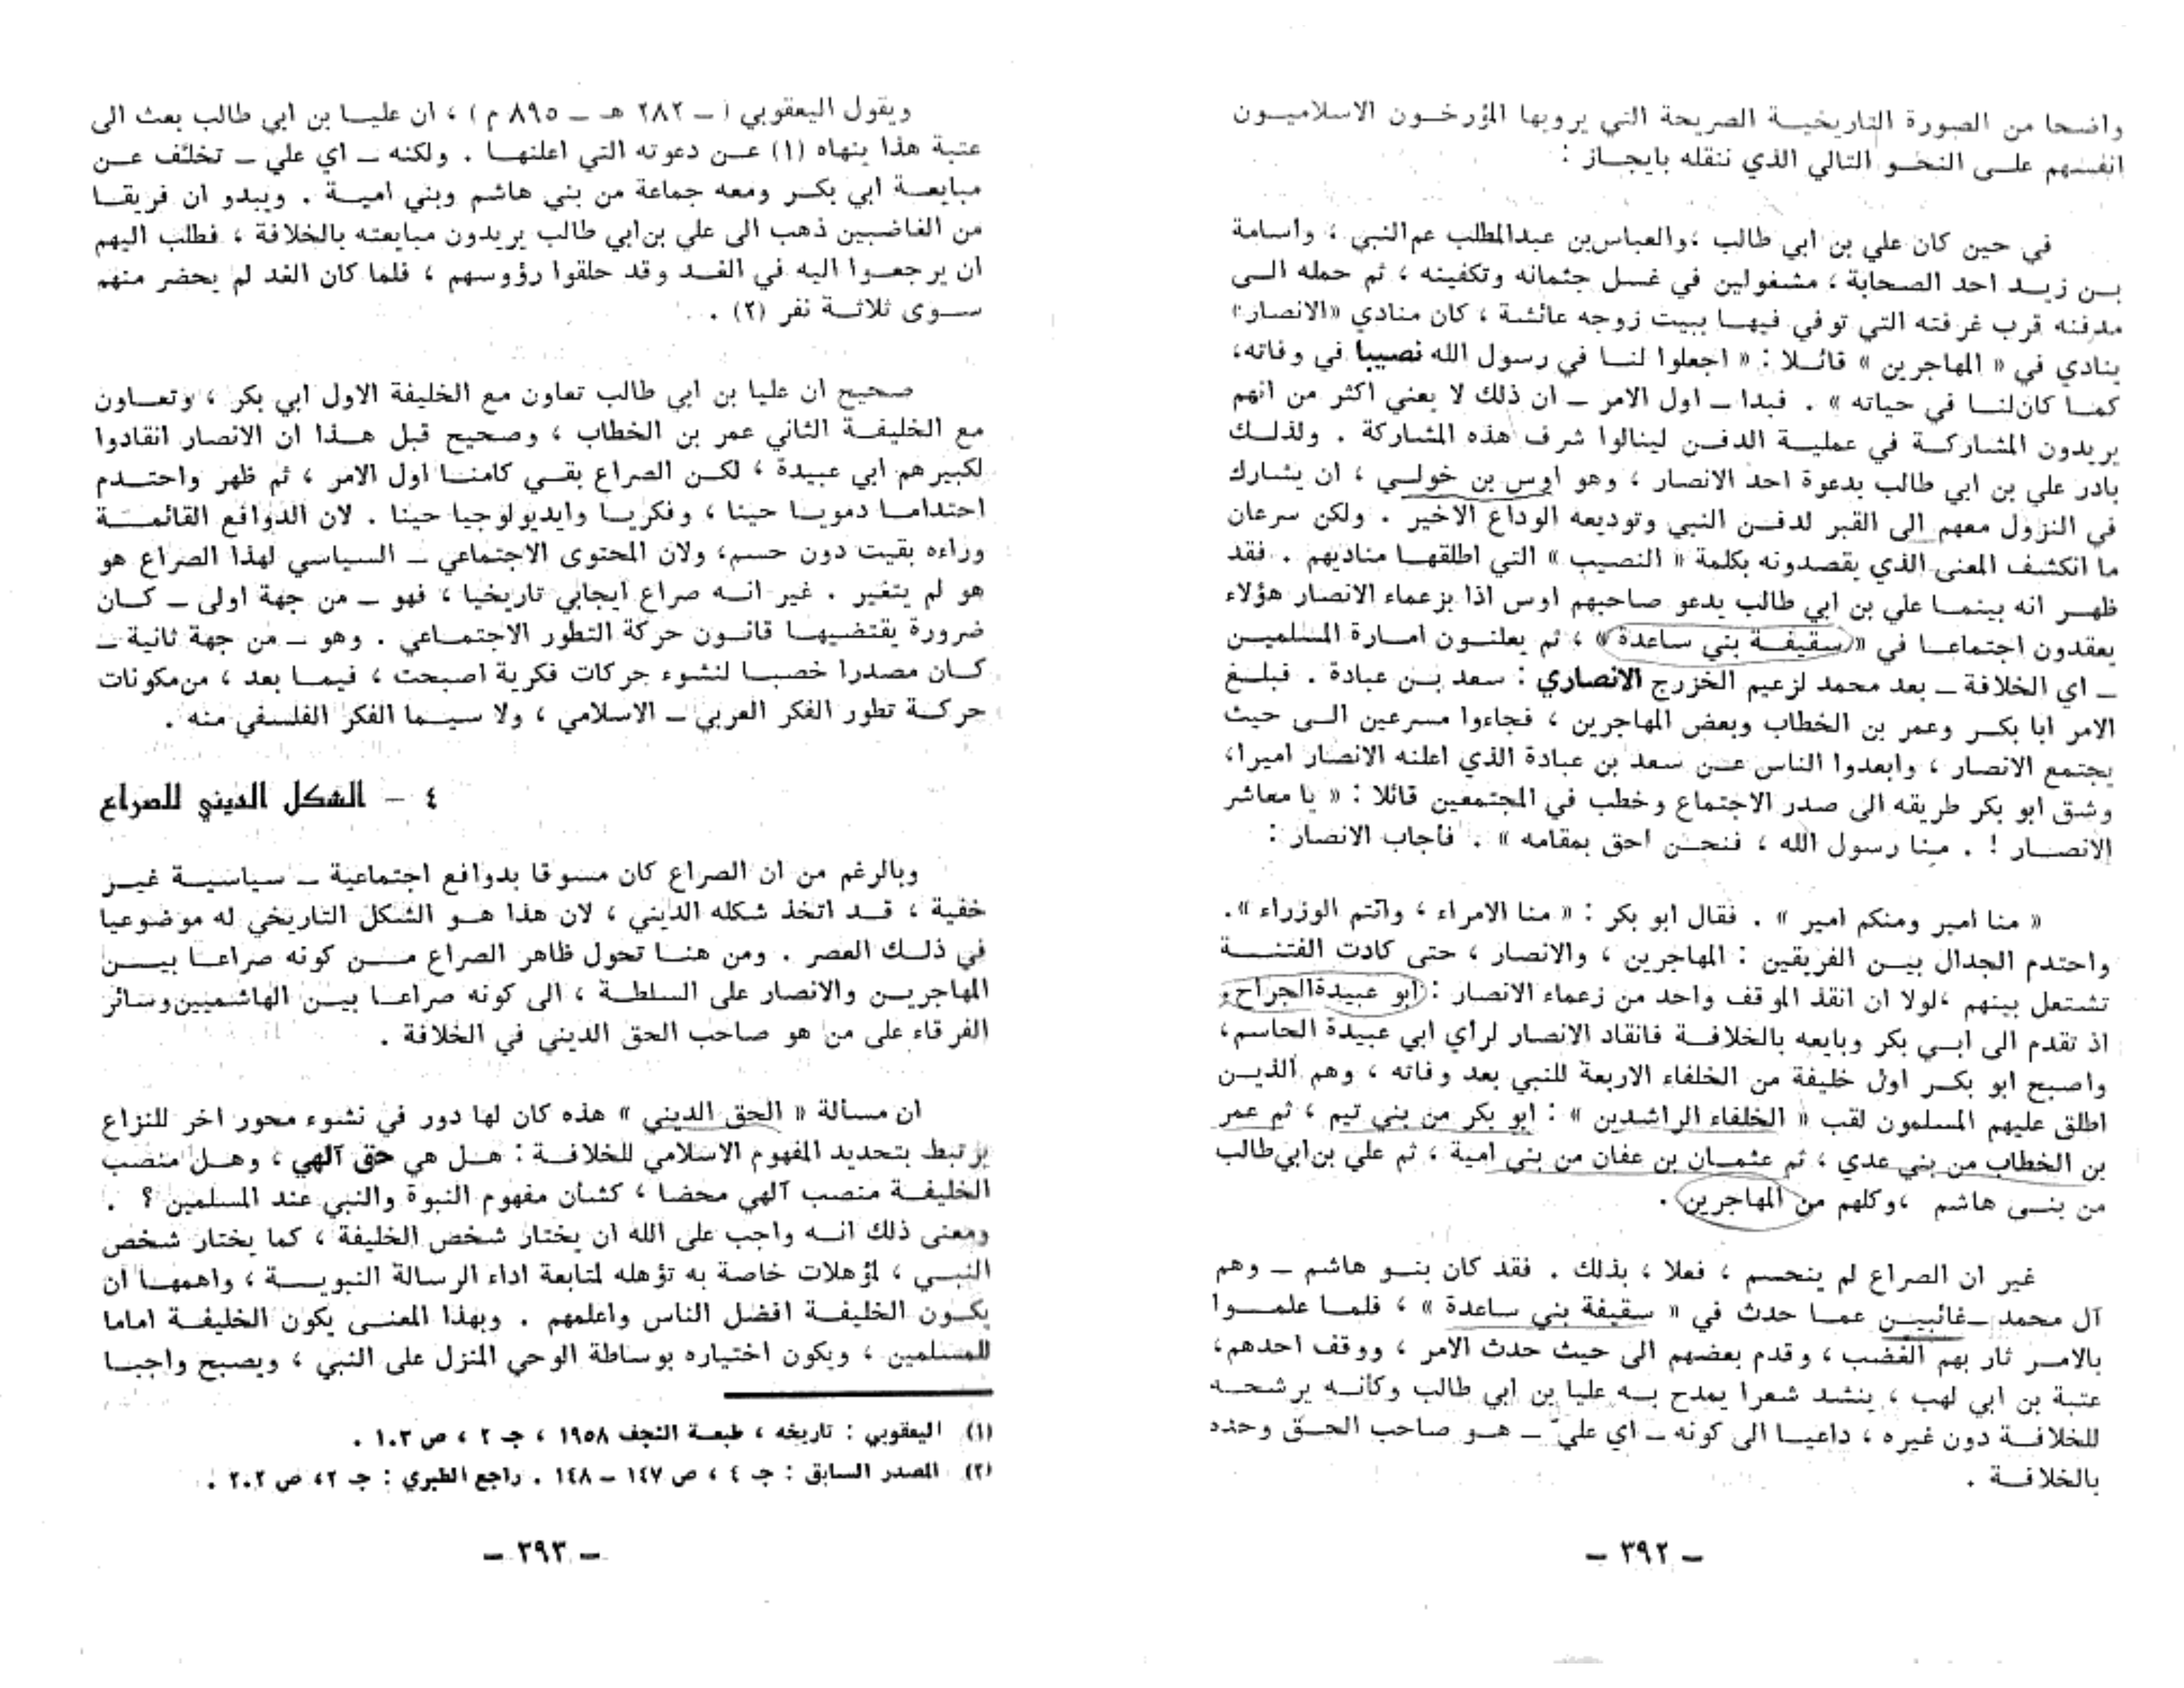 واضحا من الصورة التاريخيـة الصريحة التي يرويها المؤرخـون الاسلاميـون
انفسهم علـى النحـو التالي الذي ننقله بايجـاز :
في حين كان علي بن ابي طالب ،والعباس‌بن عبدالمطلب عم‌النبي ، واسامة
بـن زيـد احد الصحابة ، مشغولين في غسل جثمانه وتكفينه ، ثم حمله الـى
مدفنه قرب غرفته التي توفي فيهـا ببيت زوجه عائشة ، كان منادي «الانصار»
ينادي في « المهاجرين » قائـلا : « اجعلوا لنـا في رسول الله نصيبا في وفاته،
كمـا كان‌لنـا في حياته » . فبدا ـ اول الامر ـ ان ذلك لا يعني اكثر من انهم
يريدون المشاركـة في عمليـة الدفـن لينالوا شرف هذه المشاركة . ولذلـك
بادر علي بن ابي طالب بدعوة احد الانصار ، وهو اوس بن خولـي ، ان يشارك
في النزول معهم الى القبر لدفـن النبي وتوديعه الوداع الاخير . ولكن سرعان
ما انكشف المعنى الذي يقصدونه بكلمة « النصيب » التي اطلقهـا مناديهم . فقد
ظهـر انه بينمـا علي بن ابي طالب يدعو صاحبهم اوس اذا بزعماء الانصار هؤلاء
يعقدون اجتماعـا في «سقيفـة بني ساعدة» ، ثم يعلنـون امـارة المسلميـن
ـ اي الخلافة ـ بعد محمد لزعيم الخزرج الانصاري : سعد بـن عبادة . فبلـغ
الامر ابا بكـر وعمر بن الخطاب وبعض المهاجرين ، فجاءوا مسرعين الـى حيث
يجتمع الانصار ، وابعدوا الناس عـن سعد بن عبادة الذي اعلنه الانصار اميرا،
وشق ابو بكر طريقه الى صدر الاجتماع وخطب في المجتمعين قائلا : « يا معاشر
الانصـار ! . منا رسول الله ، فنحـن احق بمقامه » . فأجاب الانصار :
« منا امير ومنكم امير » . فقال ابو بكر : « منا الامراء ، وانتم الوزراء ».
واحتدم الجدال بيـن الفريقين : المهاجرين ، والانصار ، حتى كادت الفتنـة
تشتعل بينهم ،لولا ان انقذ الموقف واحد من زعماء الانصار : ابو عبيدةالجراح،
اذ تقدم الى ابـي بكر وبايعه بالخلافـة فانقاد الانصار لرأي ابي عبيدة الحاسم،
واصبح ابو بكـر اول خليفة من الخلفاء الاربعة للنبي بعد وفاته ، وهم الذيـن
اطلق عليهم المسلمون لقب « الخلفاء الراشدين » : ابو بكر من بني تيم ، ثم عمر
بن الخطاب من بني عدي ، ثم عثمـان بن عفان من بني امية ، ثم علي بن‌ابي‌طالب
من بنـي هاشم ،وكلهم من المهاجرين .
غير ان الصراع لم ينحسم ، فعلا ، بذلك . فقد كان بنـو هاشم ـ وهم
آل محمد ـغائبيـن عمـا حدث في « سقيفة بني ساعدة » ، فلمـا علمـوا
بالامـر ثار بهم الغضب ، وقدم بعضهم الى حيث حدث الامر ، ووقف احدهم،
عتبة بن ابي لهب ، ينشد شعرا يمدح بـه عليا بن ابي طالب وكأنـه يرشحـه
للخلافـة دون غيره ، داعيـا الى كونه ـ اي عليّ ـ هـو صاحب الحـق وحده
بالخلافـة .
ـ ٣٩٢ ـ
ويقول اليعقوبي ( ـ ٢٨٢ هـ ـ ٨٩٥ م ) ، ان عليـا بن ابي طالب بعث الى
عتبة هذا ينهاه (١) عـن دعوته التي اعلنهـا . ولكنه ـ اي علي ـ تخلف عـن
مبايعـة ابي بكـر ومعه جماعة من بني هاشم وبني اميـة . ويبدو ان فريقـا
من الغاضبين ذهب الى علي بن‌ابي طالب يريدون مبايعته بالخلافة ، فطلب اليهم
ان يرجعـوا اليه في الغـد وقد حلقوا رؤوسهم ، فلما كان الغد لم يحضر منهم
سـوى ثلاثـة نفر (٢) .
صحيح ان عليا بن ابي طالب تعاون مع الخليفة الاول ابي بكر ، وتعـاون
مع الخليفـة الثاني عمر بن الخطاب ، وصحيح قبل هـذا ان الانصار انقادوا
لكبيرهم ابي عبيدة ، لكـن الصراع بقـي كامنـا اول الامر ، ثم ظهر واحتـدم
احتدامـا دمويـا حينا ، وفكريـا وايديولوجيا حينا . لان الدوافع القائمـة
وراءه بقيت دون حسم، ولان المحتوى الاجتماعي ـ السياسي لهذا الصراع هو
هو لم يتغير . غير انـه صراع ايجابي تاريخيا ، فهو ـ من جهة اولى ـ كـان
ضرورة يقتضيهـا قانـون حركة التطور الاجتمـاعي . وهو ـ من جهة ثانية ـ
كـان مصدرا خصبـا لنشوء حركات فكرية اصبحت ، فيمـا بعد ، من‌مكونات
حركـة تطور الفكر العربي ـ الاسلامي ، ولا سيـما الفكر الفلسفي منه .
٤ ـ الشكل الديني للصراع
وبالرغم من ان الصراع كان مسوقا بدوافع اجتماعية ـ سياسيـة غيـر
خفية ، قـد اتخذ شكله الديني ، لان هذا هـو الشكل التاريخي له موضوعيا
في ذلـك العصر . ومن هنـا تحول ظاهر الصراع مـن كونه صراعـا بيـن
المهاجريـن والانصار على السلطـة ، الى كونه صراعـا بيـن الهاشميين‌وسائر
الفرقاء على من هو صاحب الحق الديني في الخلافة .
ان مسألة « الحق الديني » هذه كان لها دور في نشوء محور اخر للنزاع
يرتبط بتحديد المفهوم الاسلامي للخلافـة : هـل هي حق آلهي ، وهـل منصب
الخليفـة منصب آلهي محضا ، كشأن مفهوم النبوة والنبي عند المسلمين ؟ .
ومعنى ذلك انـه واجب على الله ان يختار شخص الخليفة ، كما يختار شخص
النبـي ، لمؤهلات خاصة به تؤهله لمتابعة اداء الرسالة النبويـة ، واهمهـا ان
يكـون الخليفـة افضل الناس واعلمهم . وبهذا المعنـى يكون الخليفـة اماما
للمسلمين ، ويكون اختياره بوساطة الوحي المنزل على النبي ، ويصبح واجبـا
(١) اليعقوبي : تاريخه ، طبعـة النجف ١٩٥٨ ، جـ ٢ ، ص ١٠٣ .
(٢) المصدر السابق : جـ ٤ ، ص ١٤٧ ـ ١٤٨ . راجع الطبري : جـ ٢، ص ٢٠٢ .
ـ ٣٩٣ ـ